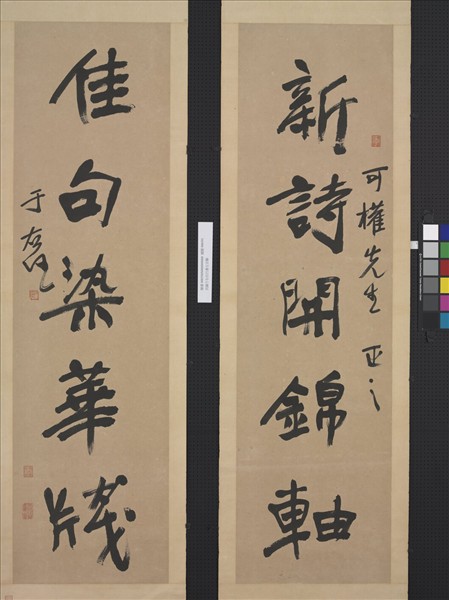 新詩開錦軸
可權先生 正之
佳句染華牋
于右任